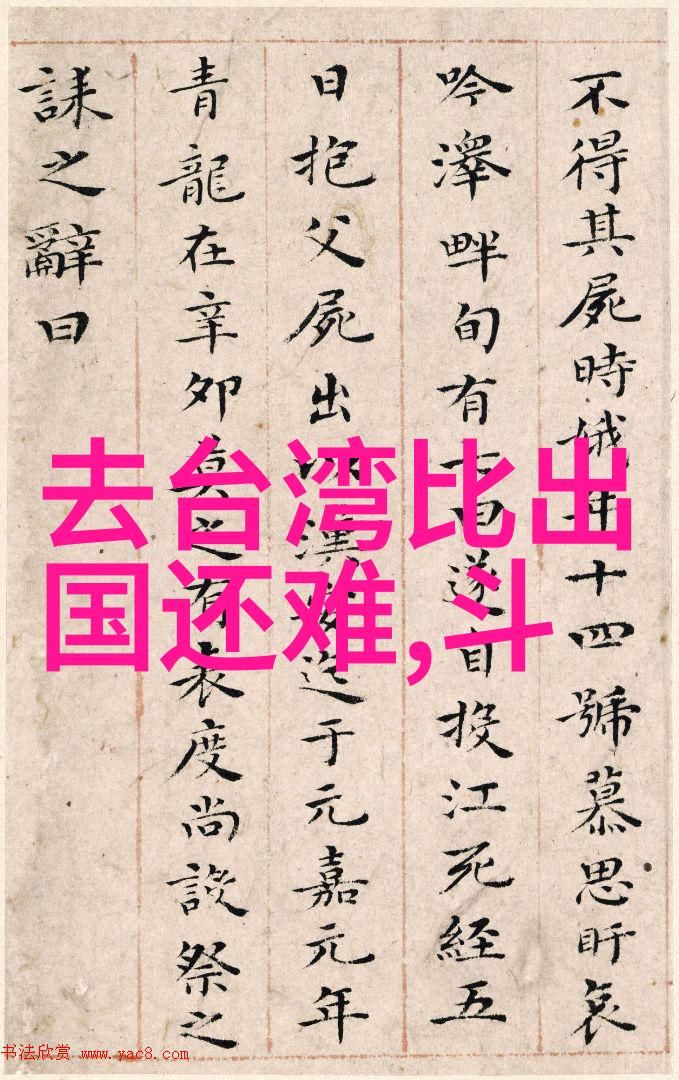 不得其屍時娥年十四號慕思盱哀
吟澤畔旬有七日遂自投江死經五
日抱父屍出以漢安迄于元嘉元年
青龍在辛卯莫之有表度尚設祭之
誄之辭曰
去台湾比出
国还难,斗
书法欣赏 www.yac8.com